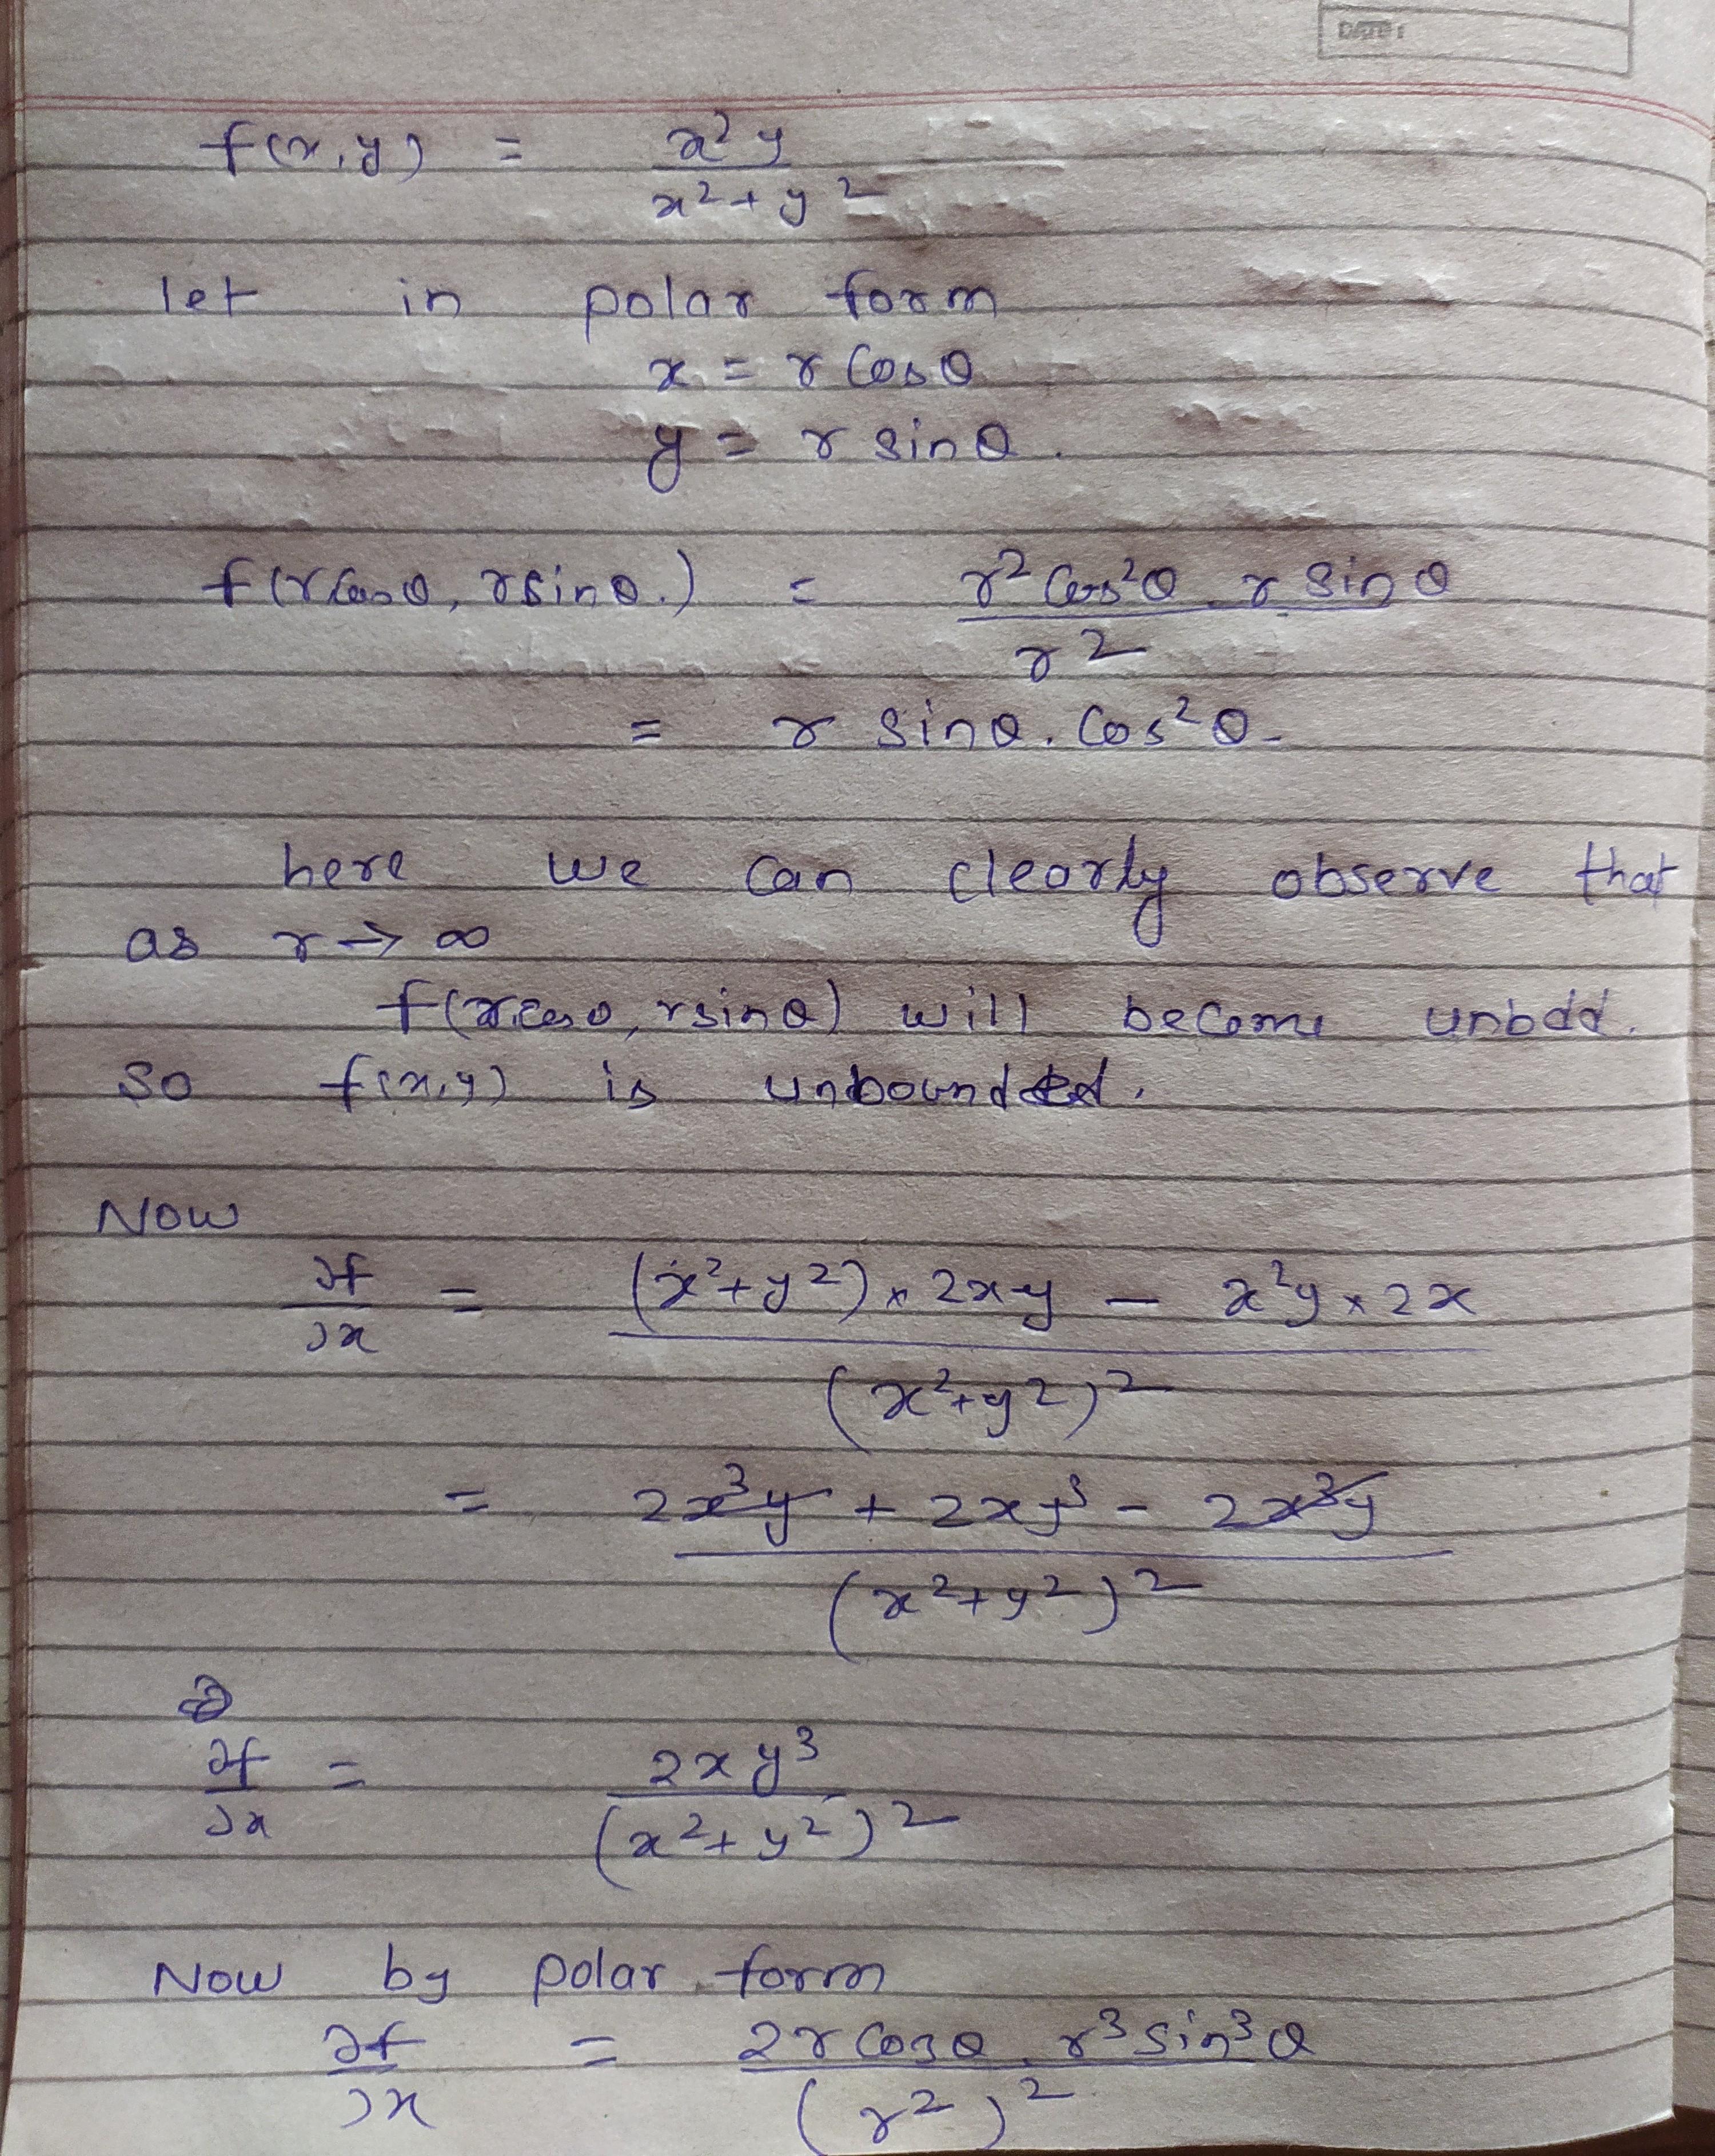 DATE:
f(x,y) = x²y / x²+y²
let in polar form
x = r Cosθ
y = r sinθ.
f(rCosθ, rsinθ.) = r² Cos²θ . r Sinθ / r²
= r Sinθ. Cos²θ.
here we can clearly observe that
as r → ∞
f(rcosθ, rsinθ) will become unbdd.
so f(x,y) is unbounded.
Now
∂f/∂x = (x²+y²) × 2xy − x²y × 2x / (x²+y²)²
= 2x³y + 2xy³ − 2x³y / (x²+y²)²
∂f/∂x = 2xy³ / (x²+y²)²
Now by polar form
∂f/∂x = 2r Cosθ . r³ Sin³θ / (r²)²